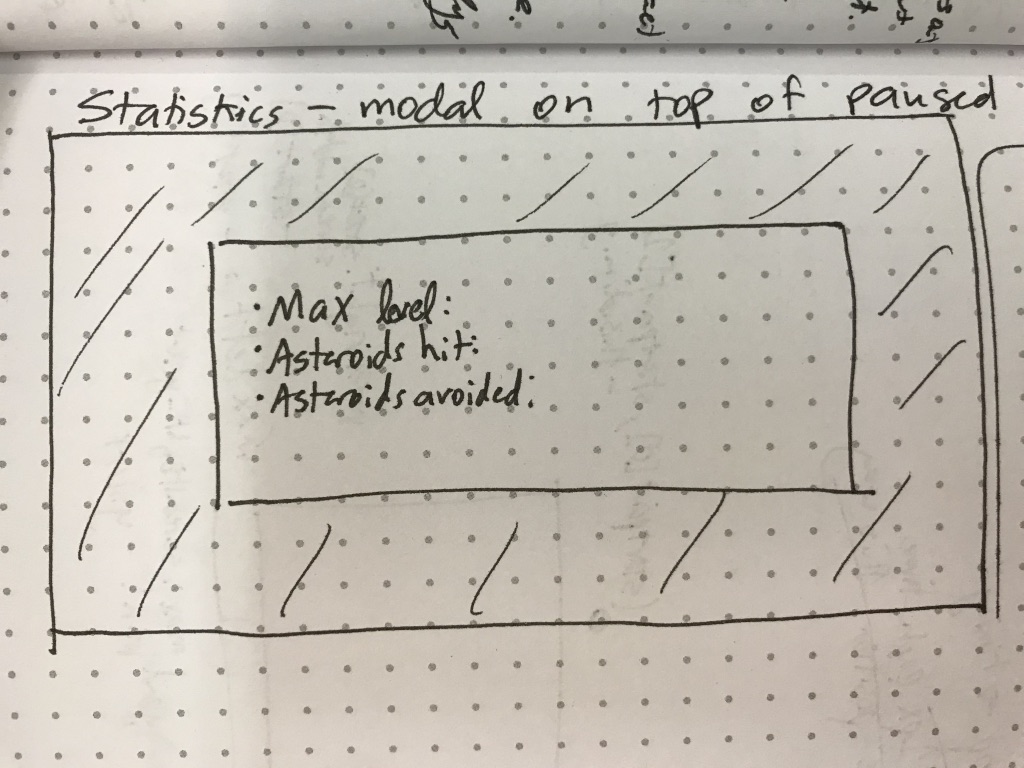 Statistics - modal on top of paused
• Max level:
• Asteroids hit:
• Asteroids avoided: